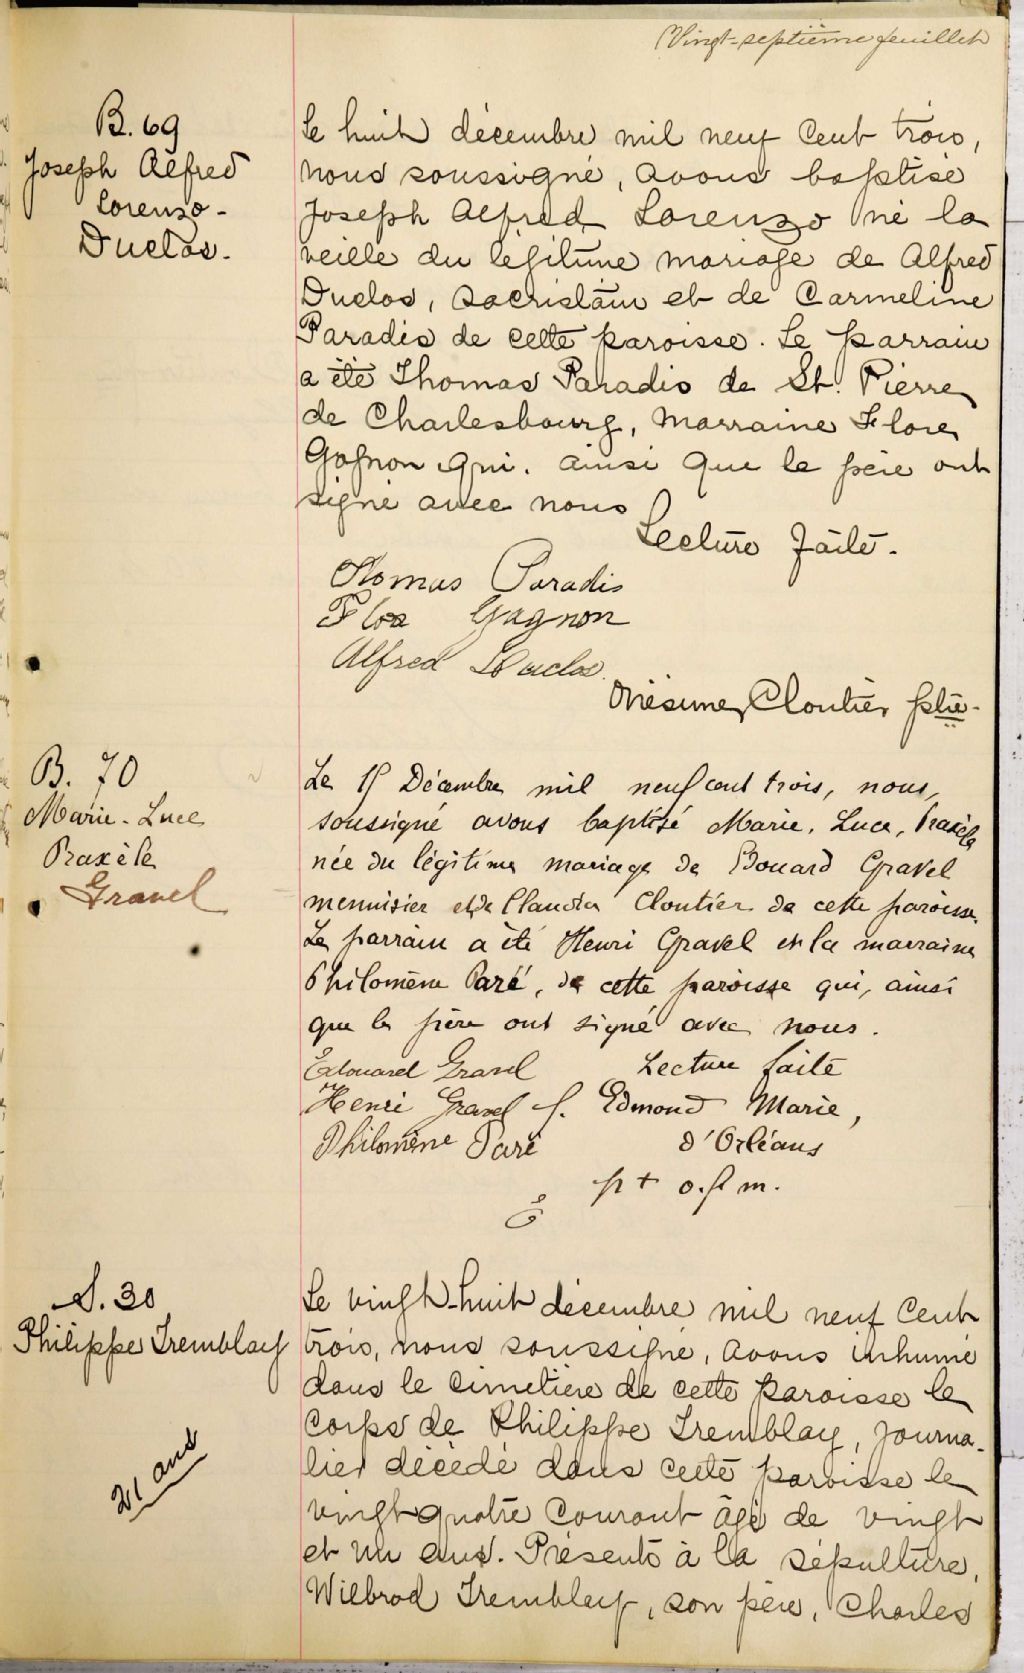 Vingt-septième feuillet
B. 69
Joseph Alfred
Lorenzo-
Duclos.
Le huit décembre mil neuf cent trois,
nous soussigné, avons baptisé
Joseph Alfred Lorenzo né la
veille du légitime mariage de Alfred
Duclos, sacristain et de Carmeline
Paradis de cette paroisse. Le parrain
a été Thomas Paradis de St. Pierre
de Charlesbourg, marraine Flore
Gagnon qui. ainsi que le père ont
signé avec nous
Lecture faite.
Thomas Paradis
Flora Gagnon
Alfred Duclos.
Onésime Cloutier ptre-
B. 70
Marie-Luce
Praxèle
Gravel
Le Décembre mil neuf cent trois, nous,
soussigné avons baptisé Marie, Luce, Praxèle
née du légitime mariage de Gravel
menuisier et de Claudia Cloutier de cette paroisse.
Le parrain a été Henri Gravel et la marraine
Philomène Paré, de cette paroisse qui, ainsi
que le père ont signé avec nous.
Edouard Gravel
Lecture faite
Henri Gravel
f. Edmond Marie,
Philomène Paré
d'Orléans
o.f.m.
S. 30
Philippe Tremblay
21 ans
Le vingt-huit décembre mil neuf cent
trois, nous soussigné, avons inhumé
dans le cimetière de cette paroisse le
corps de Philippe Tremblay, journa-
lier décédé dans cette paroisse le
vingt quatre courant âgé de vingt
et un ans. Présents à la sépulture,
Wilbrod Tremblay, son père, Charles